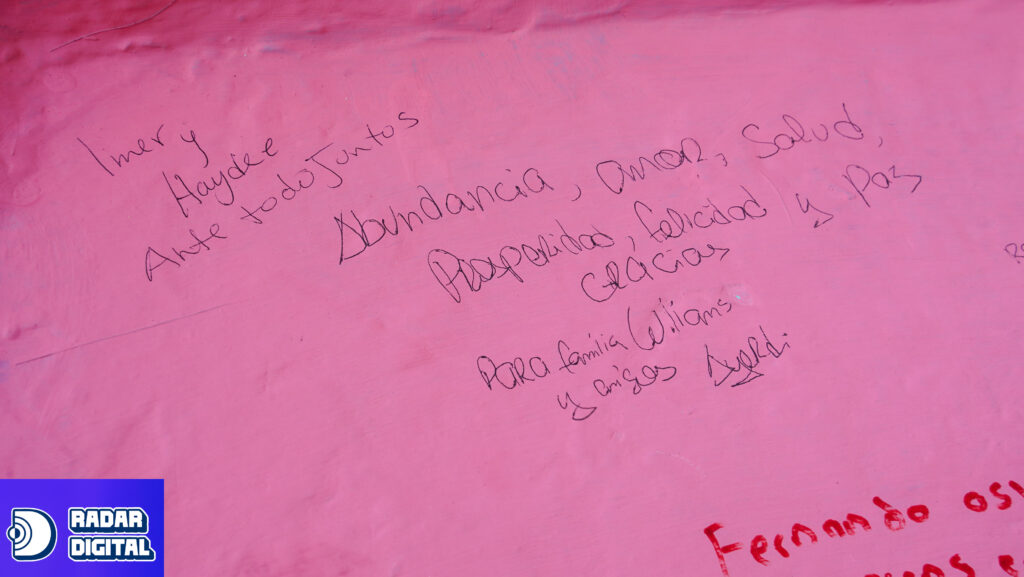 Imer y
Haydee
Ante todo Juntos
Abundancia, amor, Salud,
Prosperidad, felicidad y Paz
Gracias
Para familia Wiliams
y amigos
Fernando
RADAR
DIGITAL